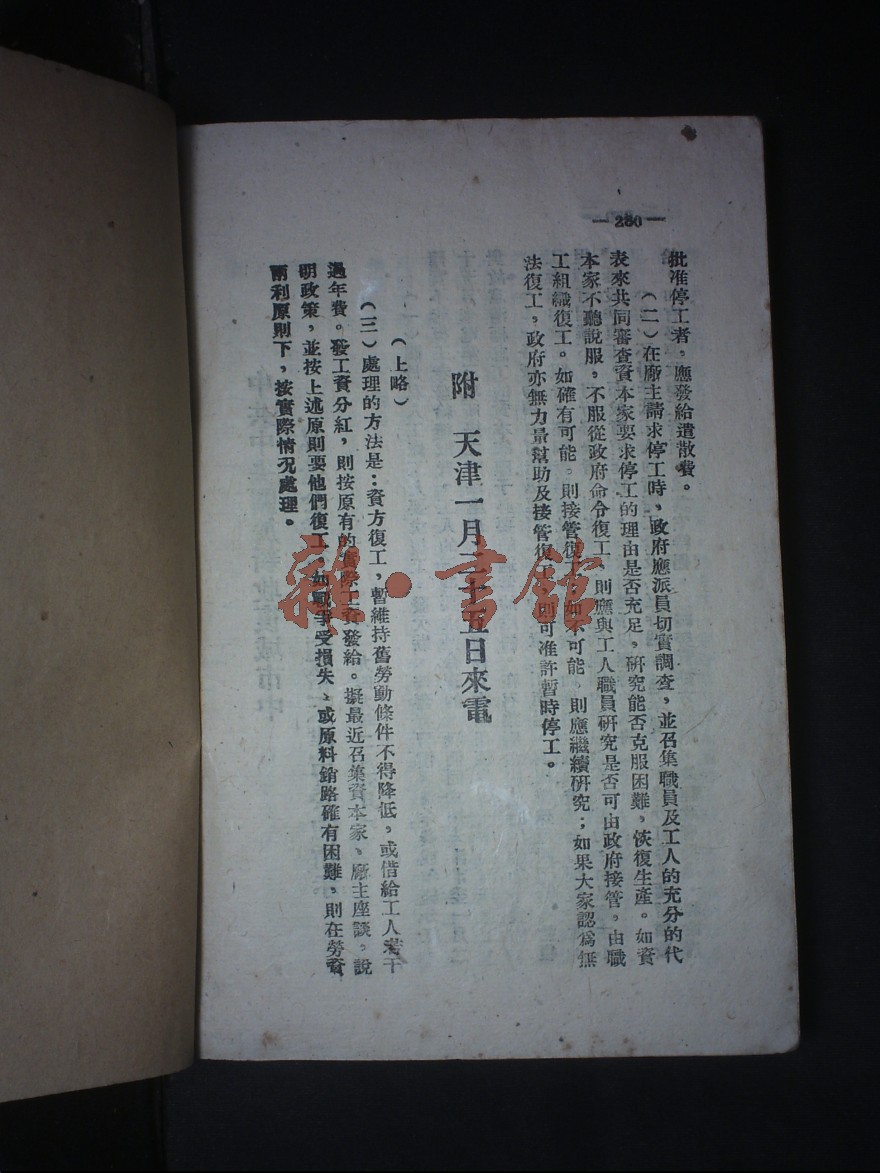 —280—
批准停工者，應發給遣散費。
（二）在廠主請求停工時，政府應派員切實調查，並召集職員及工人的充分的代
表來共同審查資本家要求停工的理由是否充足，研究能否克服困難，恢復生產。如資
本家不聽說服，不服從政府命令復工，則應與工人職員研究是否可由政府接管，由職
工組織復工。如確有可能，則接管復工，如不可能，則應繼續研究；如果大家認爲無
法復工，政府亦無力量幫助及接管復工，則可准許暫時停工。
附　天津一月二十五日來電
（上略）
（三）處理的方法是：資方復工，暫維持舊勞動條件不得降低，或借給工人若干
過年費。發工資分紅，則按原有的實際工資發給。擬最近召集資本家、廠主座談，說
明政策，並按上述原則要他們復工，如戰爭受損失、或原料銷路確有困難，則在勞資
兩利原則下，按實際情况處理。
雜·書館